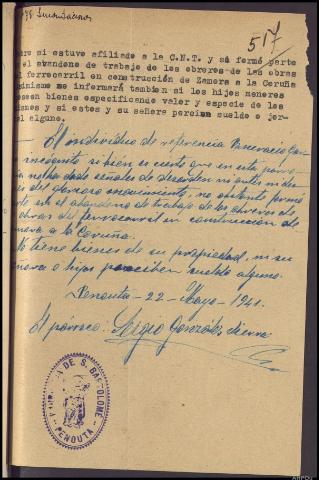 517
mero si estuvo afiliado a la C.N.T. y si formó parte
el abandono de trabajo de los obreros de las obras
el ferrocarril en construcción de Zamora a la Coruña
simismo me informará también si los hijos menores
poseen bienes especificando valor y especie de los
ismos y si estos y su señora perciben sueldo o jor-
nal alguno.
El individuo de referencia
incógnito si bien es cierto que en esta parro-
quia no ha dado señales de ni antes ni des-
pués del glorioso movimiento, no obstante formó
parte en el abandono de trabajo de los obreros de
obras del ferrocarril en construcción de
Zamora a la Coruña.
Ni tiene bienes de su propiedad, ni su
señora e hijos perciben sueldo alguno.
Penouta - 22 - Mayo - 1941.
El párroco: Ligio González
PARROQUIA DE S. BARTOLOMÉ
PENOUTA